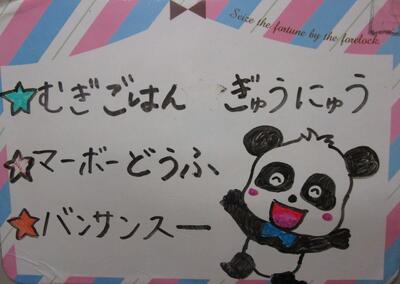 Seize the fortune by the forelock.
むぎごはん ぎゅうにゅう
マーボーどうふ
バンサンスー